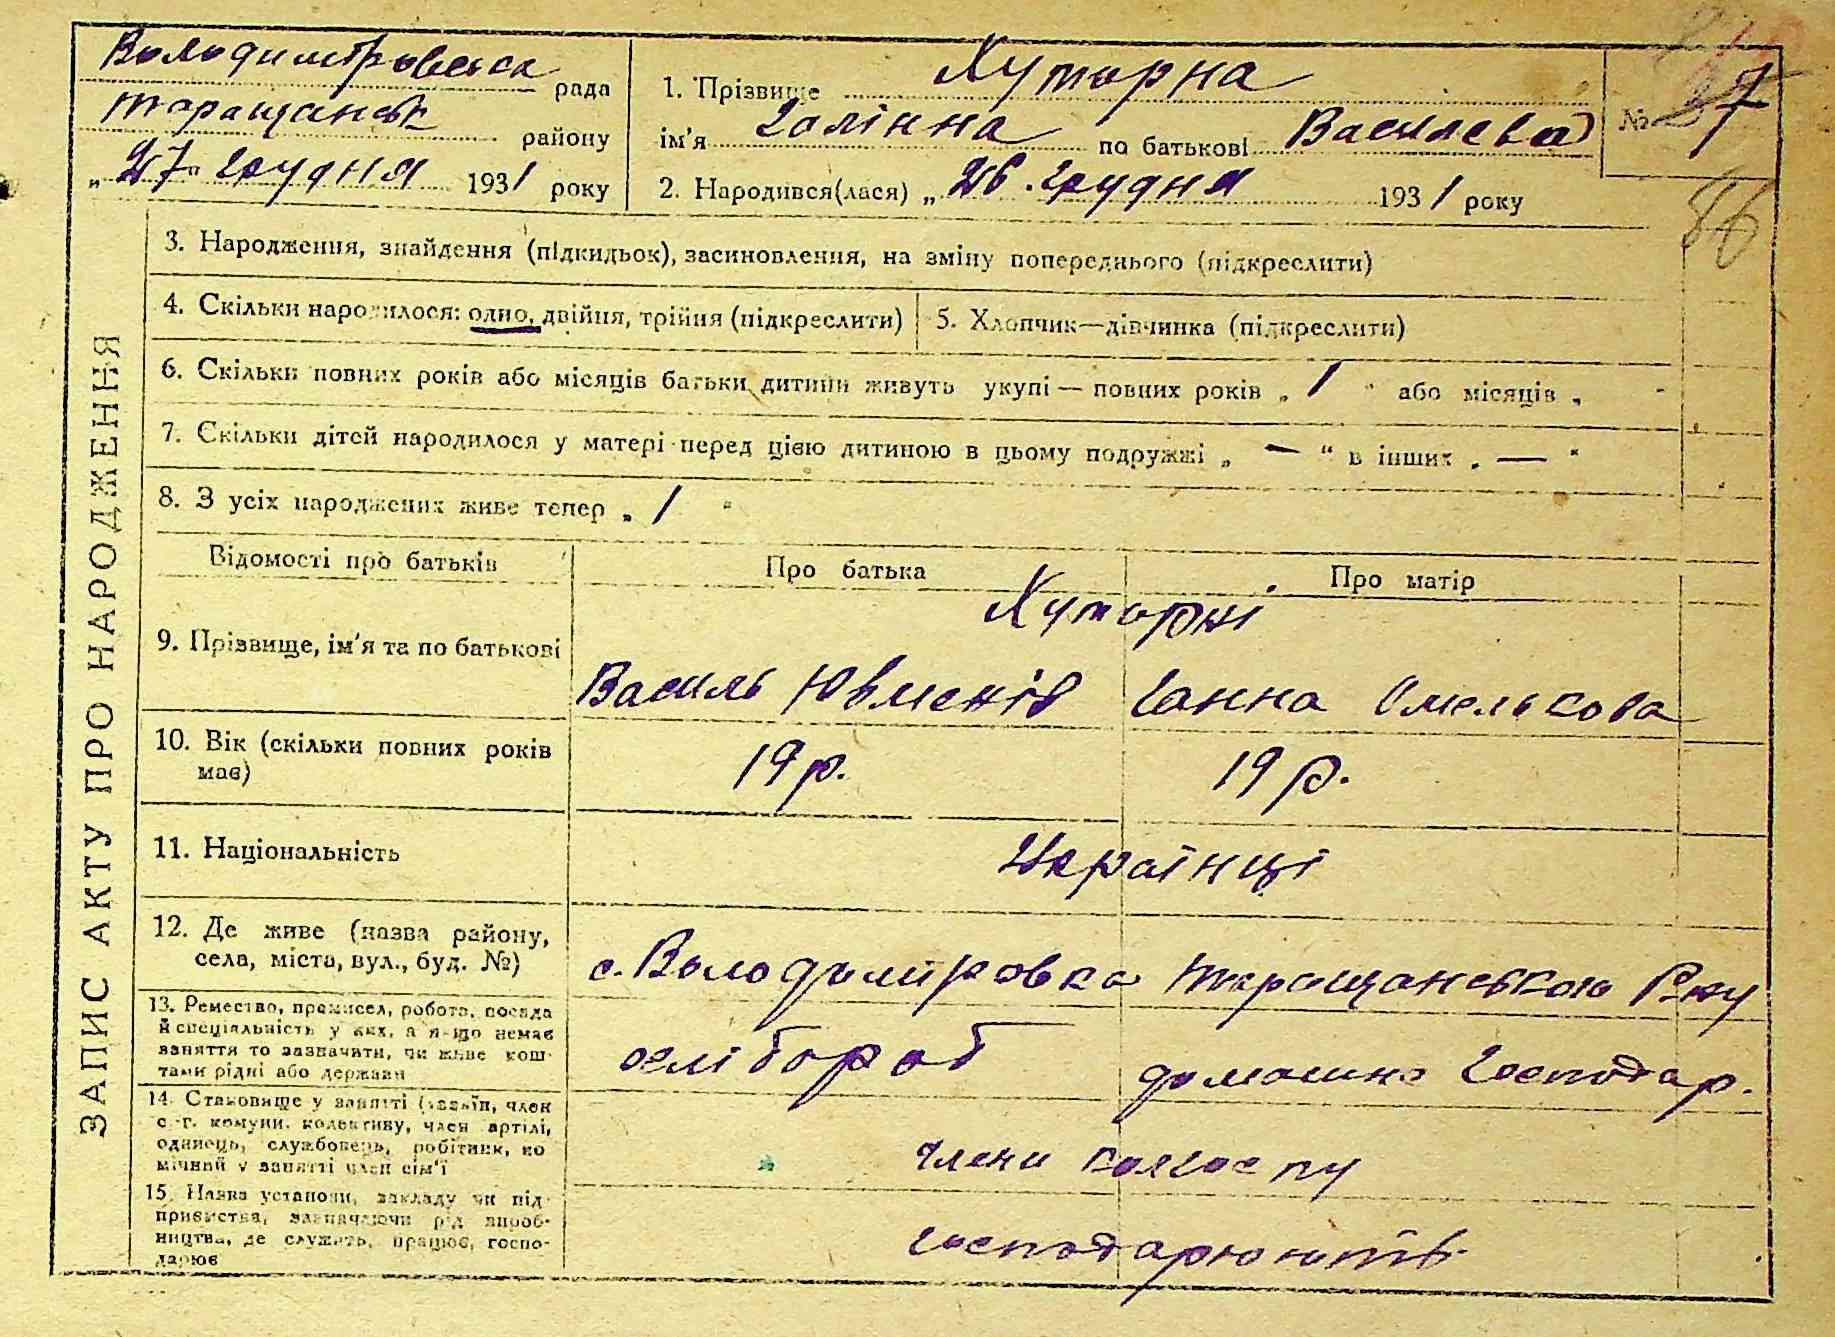 Володимтровська рада
Таращанськ району
„27" грудня 1931 року
1. Прізвище Хуторна
ім'я Галінна по батькові Василева
2. Народився(лася) „26. грудня 1931 року
№ 7
86
ЗАПИС АКТУ ПРО НАРОДЖЕННЯ
3. Народження, знайдення (підкидьок), засиновлення, на зміну попереднього (підкреслити)
4. Скільки народилося: одно, двійня, трійня (підкреслити)
5. Хлопчик—дівчинка (підкреслити)
6. Скільки повних років або місяців батьки дитини живуть укупі — повних років „ 1 " або місяців „ "
7. Скільки дітей народилося у матері перед цією дитиною в цьому подружжі „ — " в інших „ — "
8. З усіх народжених живе тепер „ 1 "
Відомості про батьків
Про батька
Про матір
9. Прізвище, ім'я та по батькові
Хуторні
Василь Ювменів
Ганна Омелькова
10. Вік (скільки повних років
має)
19 р.
19 р.
11. Національність
Українці
12. Де живе (назва району,
села, міста, вул., буд. №)
с. Володимтровка Таращанського Р-ну
13. Ремество, промисел, робота, посада
й спеціальність у них, а якщо немає
заняття то зазначити, чи живе кош-
тами рідні або держави
хлібороб
домашнє Господар.
14. Становище у занятті (хазяїн, член
с.-г. комуни, колективу, член артілі,
одинець, службовець, робітник, по
мічний у занятті член сім'ї
члени колгоспу
15. Назва установи, закладу чи під-
приємства, зазначаючи рід вироб-
ництва, де служить, працює, госпо-
дарює
господарюють